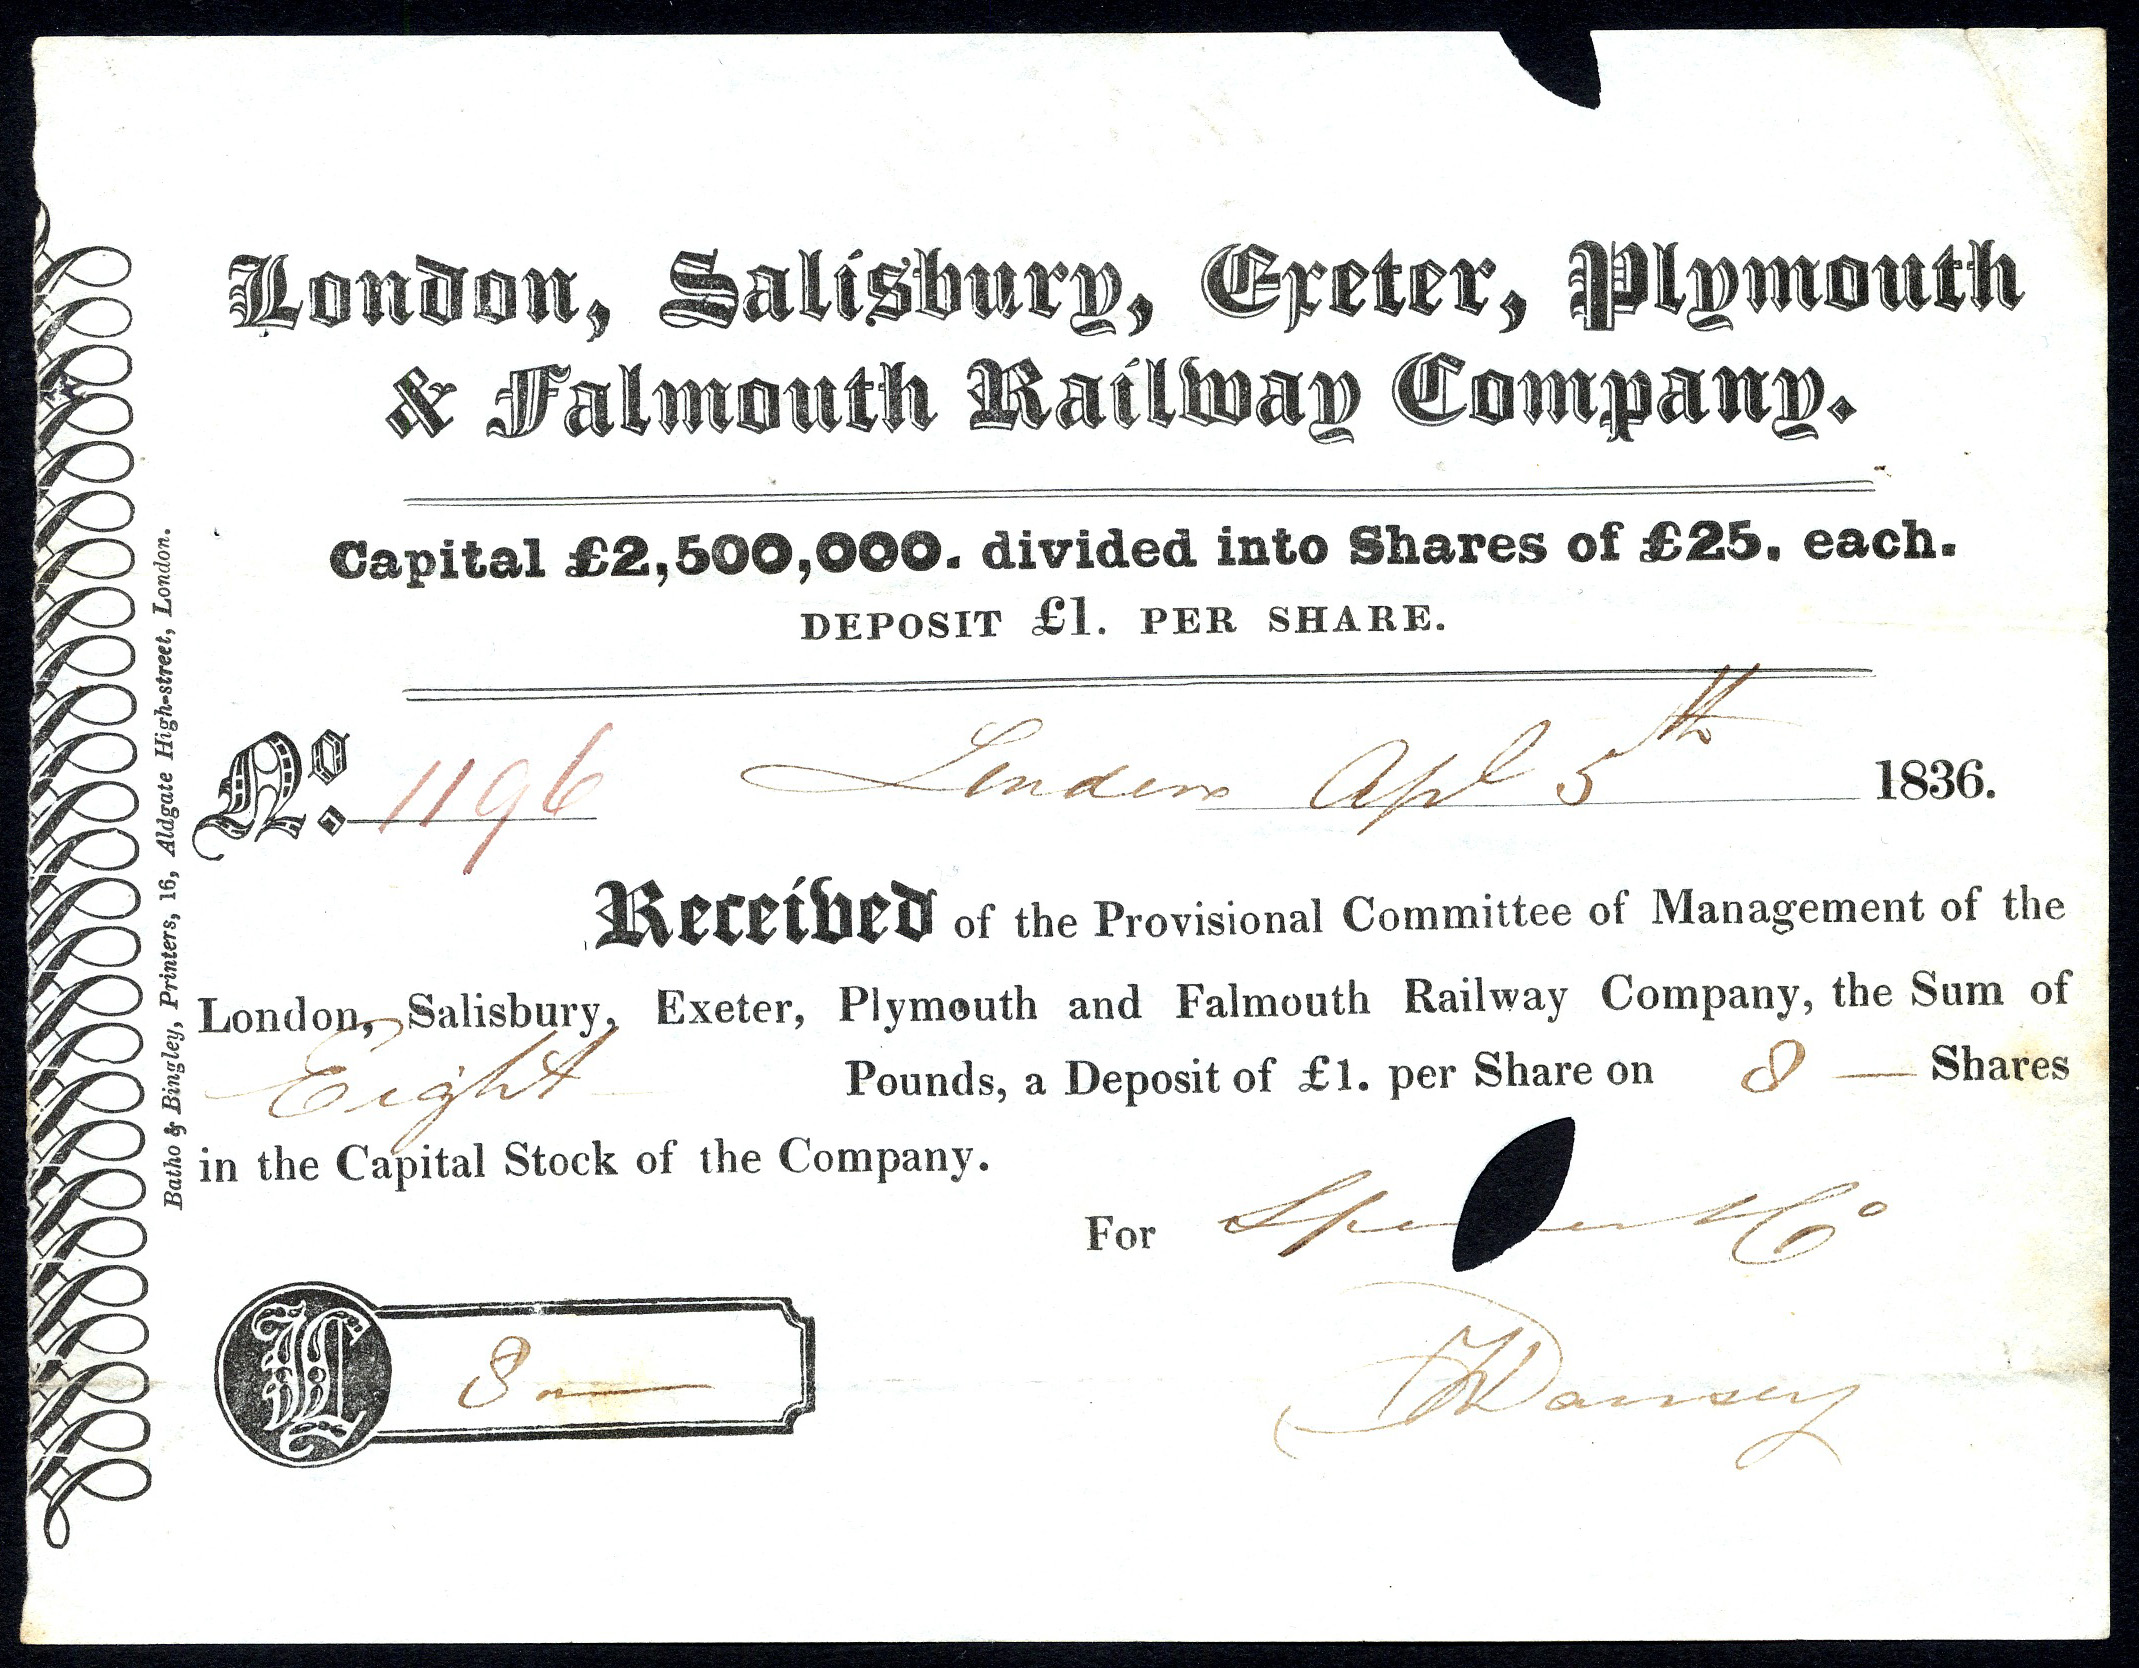 London, Salisbury, Exeter, Plymouth
& Falmouth Railway Company.
Capital £2,500,000. divided into Shares of £25. each.
DEPOSIT £1. PER SHARE.
No. 1196 London Apl 5th 1836.
Received of the Provisional Committee of Management of the
London, Salisbury, Exeter, Plymouth and Falmouth Railway Company, the Sum of
Eight Pounds, a Deposit of £1. per Share on 8 — Shares
in the Capital Stock of the Company.
For & Co
£ 8 —
Batho & Bingley, Printers, 16, Aldgate High-street, London.